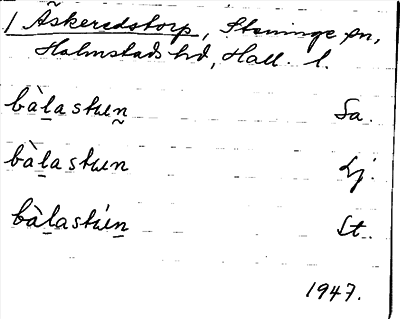 1 Äskeredstorp, Steninge sn,
Halmstads hd, Hall. l.
bàl̠astɯen̰ Sa.
bàl̠astɯen Lj.
bàl̠astɯ́en̠ St.
1947.